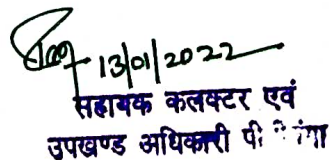 13/01/2022
सहायक कलक्टर एवं
उपखण्ड अधिकारी